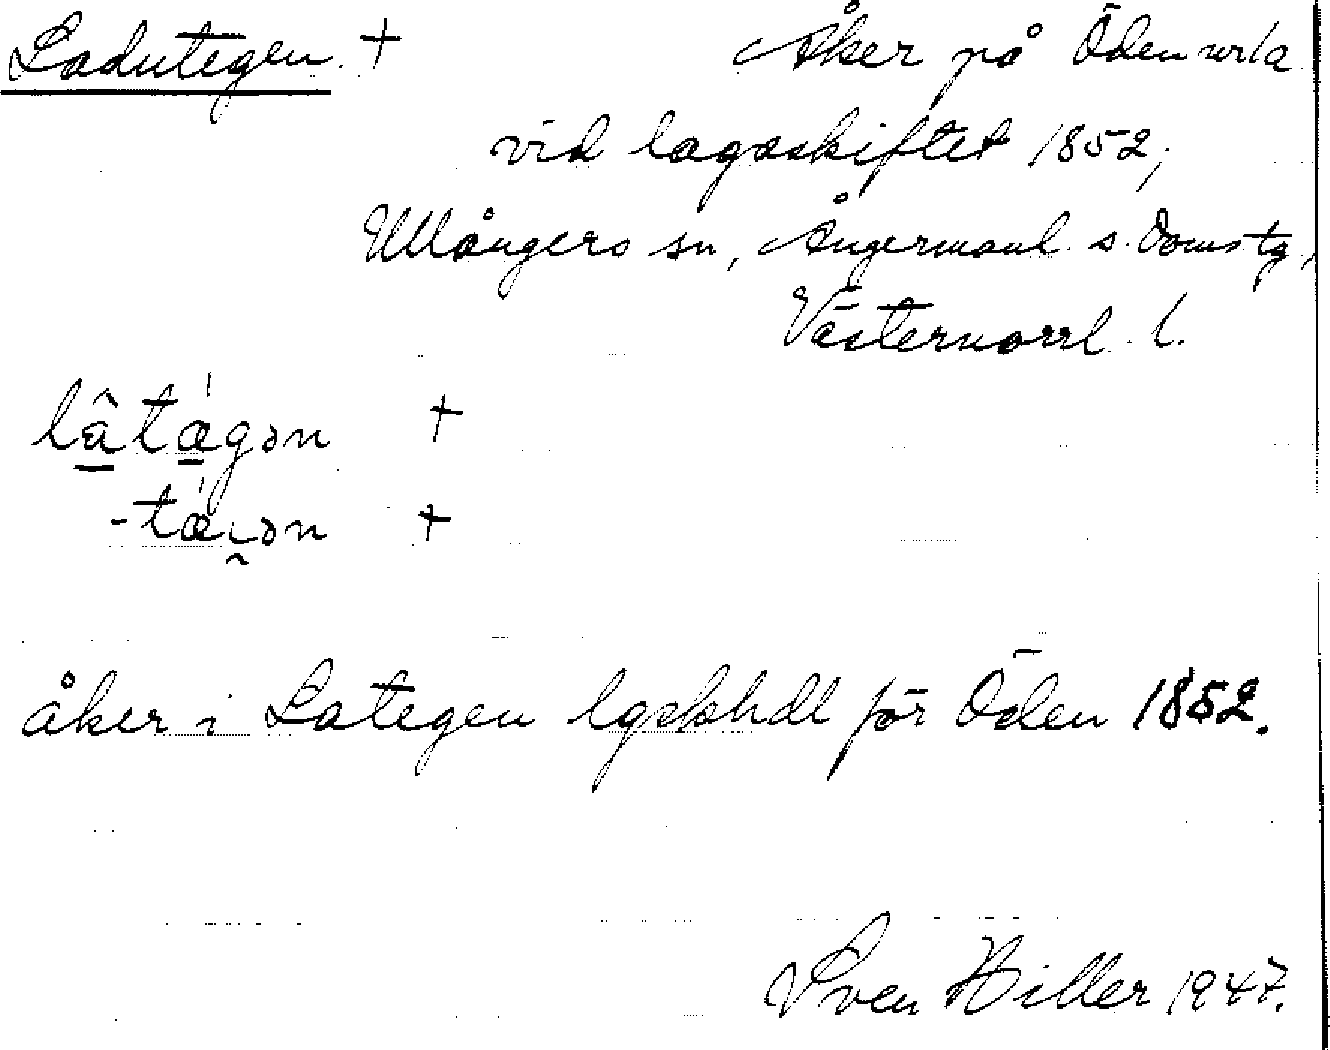 Ladutegen + Åker på Öden
vid lagaskiftet 1852;
Ullångers sn, Ångermanl. s. Domstg,
Västernorrl. l.
lâtǽgən +
-tǽi̯ən +
åker i Lategen lgskhdl för Öden 1852.
Sven Hiller 1947.